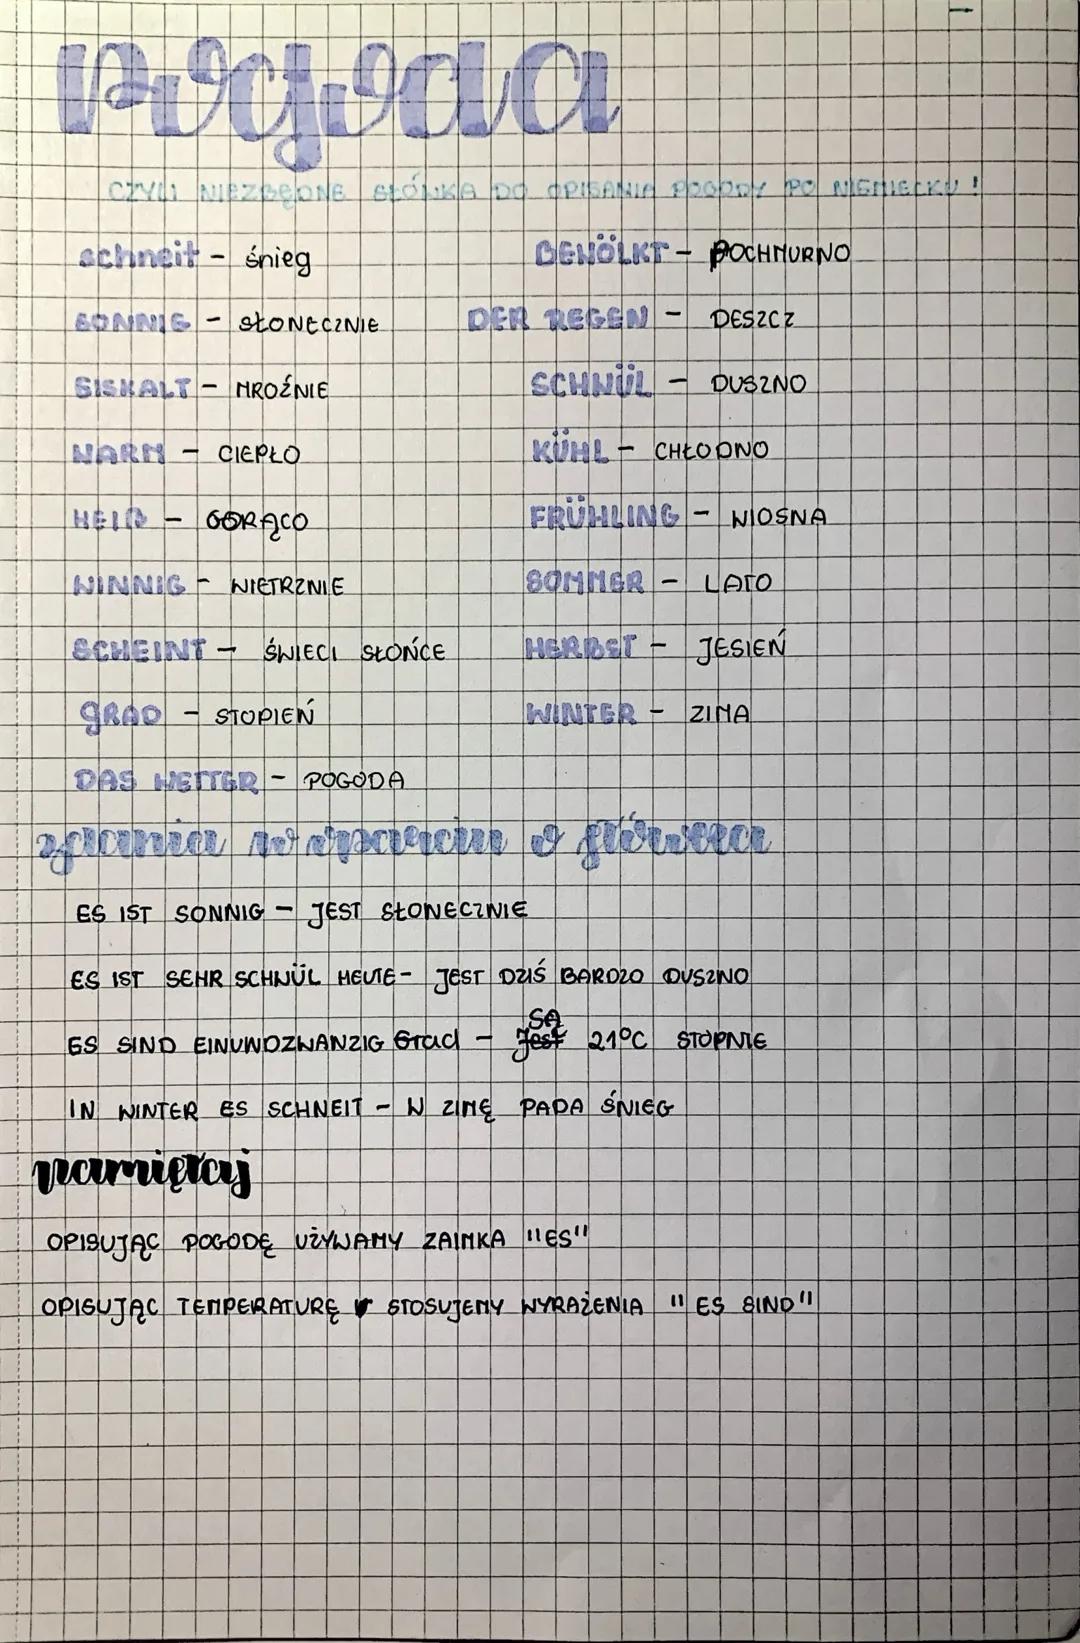 Pogoda
CZYLI NIEZBĘDNE SŁÓWKA DO OPISANIA POGODY PO NIEMIECKU !
schneit - śnieg
SONNIG - SŁONECZNIE
EISKALT - MROŹNIE
WARM - CIEPŁO
HEIß - GORĄCO
WINNIG - WIETRZNIE
SCHEINT - ŚWIECI SŁOŃCE
GRAD - STOPIEŃ
DAS WETTER - POGODA
BEWÖLKT - POCHMURNO
DER REGEN - DESZCZ
SCHWÜL - DUSZNO
KÜHL - CHŁODNO
FRÜHLING - WIOSNA
SOMMER - LATO
HERBST - JESIEŃ
WINTER - ZIMA
zdania w oparciu o słówka
ES IST SONNIG - JEST SŁONECZNIE
ES IST SEHR SCHWÜL HEUTE - JEST DZIŚ BARDZO DUSZNO
ES SIND EINUNDZWANZIG Grad - SĄ 21°C STOPNIE
IN WINTER ES SCHNEIT - W ZIMĘ PADA ŚNIEG
pamiętaj
OPISUJĄC POGODĘ UŻYWAMY ZAIMKA "ES"
OPISUJĄC TEMPERATURĘ STOSUJEMY WYRAŻENIA "ES SIND"